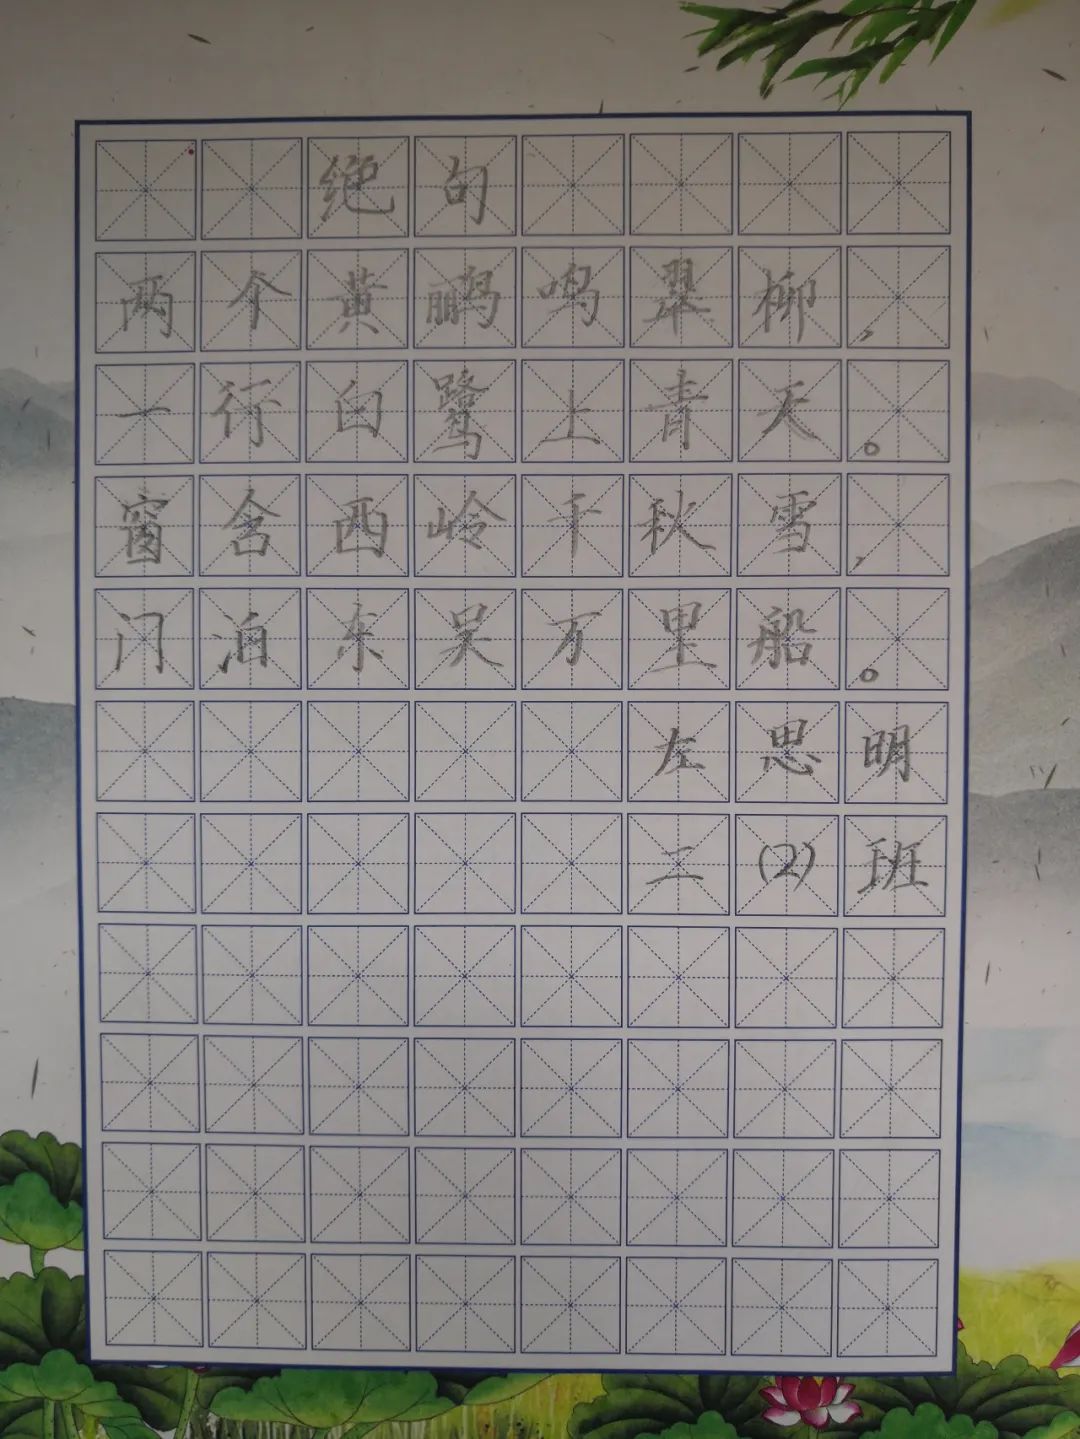 绝句
两个黄鹂鸣翠柳，
一行白鹭上青天。
窗含西岭千秋雪，
门泊东吴万里船。
左思明
二(2)班